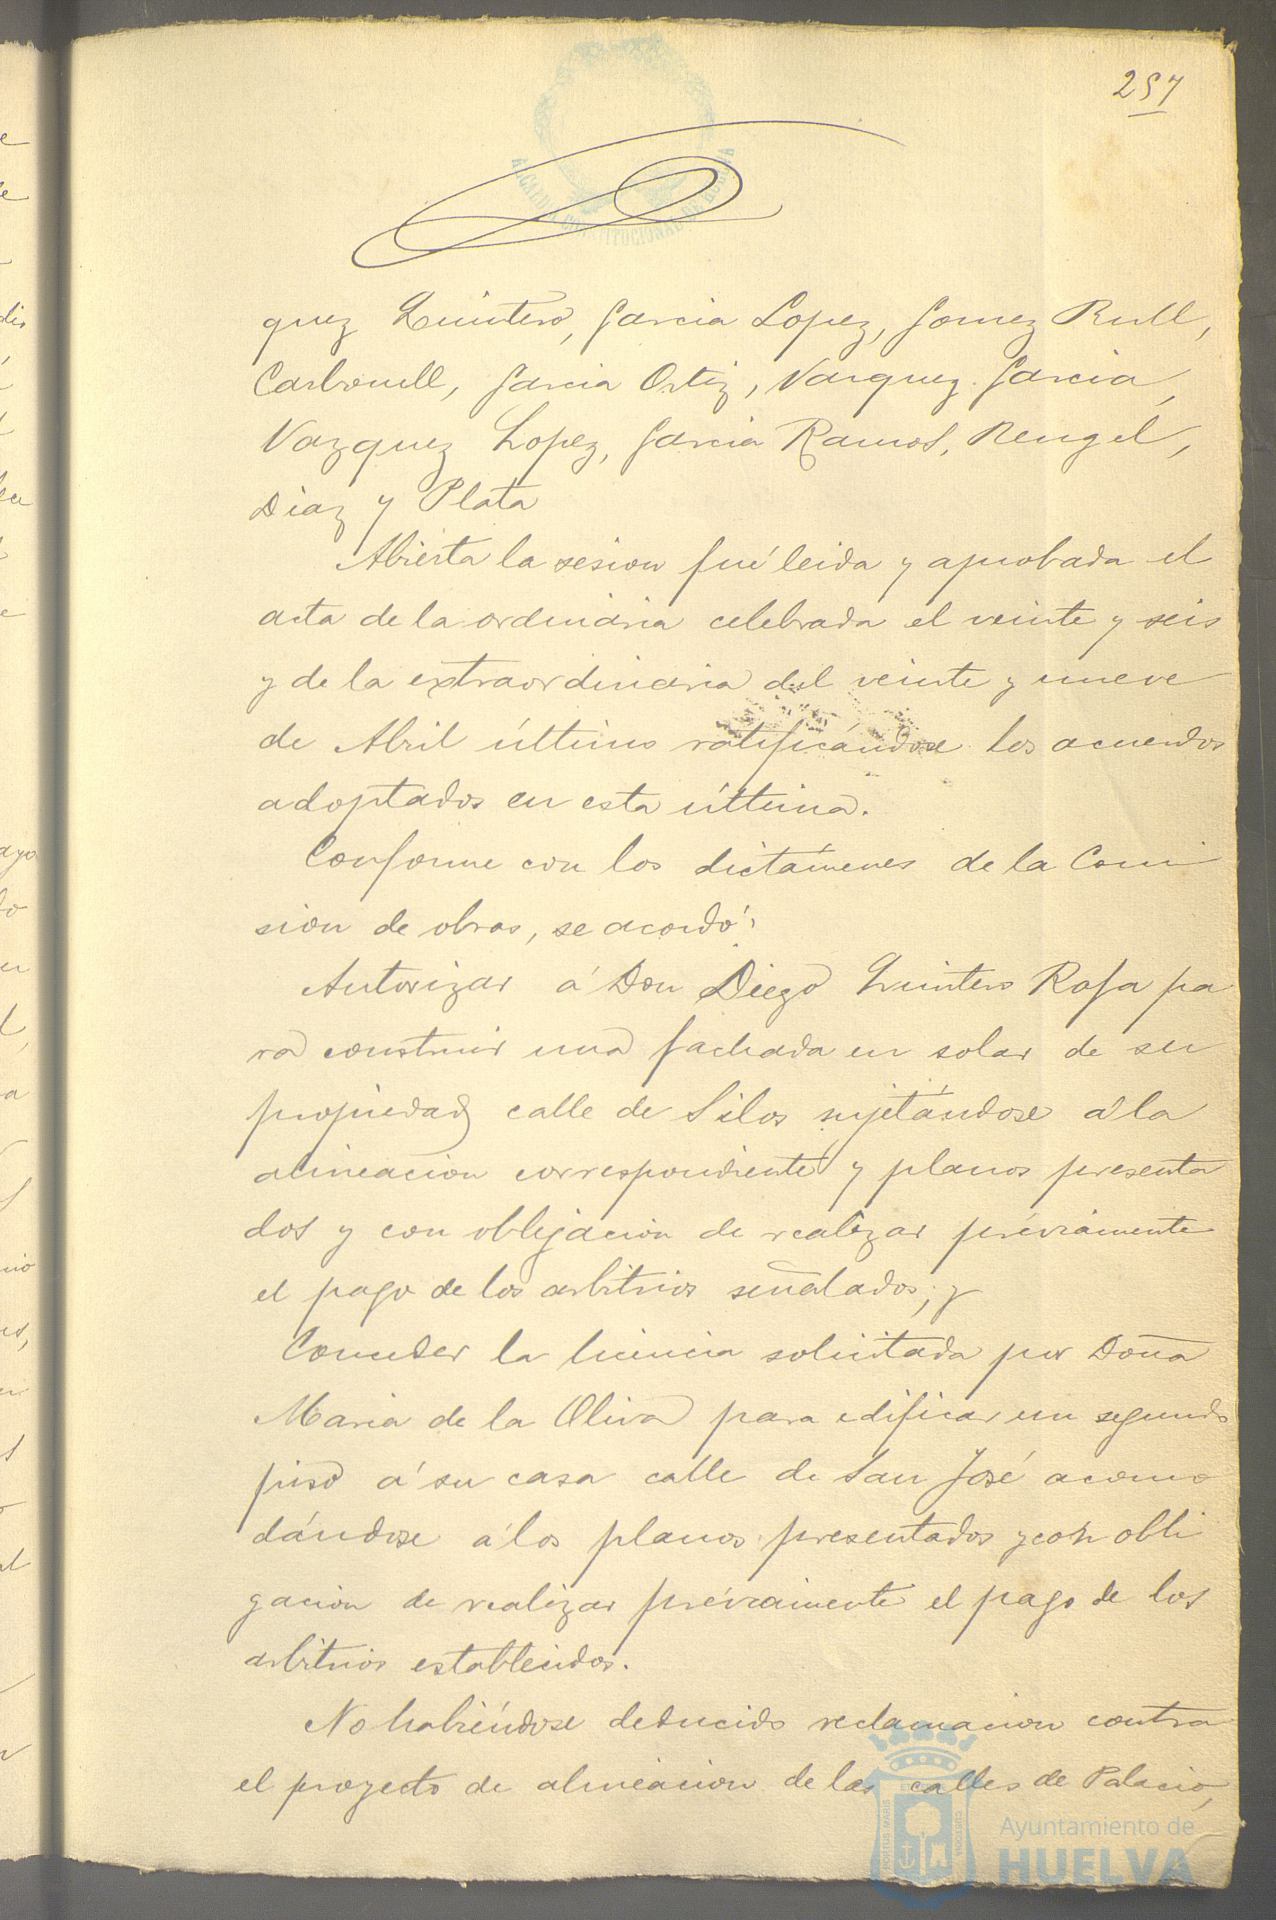 257
ALCALDIA CONSTITUCIONAL DE HUELVA
quez Quintero, Garcia Lopez, Gomez Rull,
Carbonell, Garcia Ortiz, Vazquez Garcia,
Vazquez Lopez, Garcia Ramos, Rengel,
Diaz y Plata
Abierta la sesion fué leida y aprobada el
acta de la ordinaria celebrada el veinte y seis
y de la extraordinaria del veinte y nueve
de Abril último ratificándose los acuerdos
adoptados en esta última.
Conforme con los dictámenes de la Comi
sion de obras, se acordó:
Autorizar á Don Diego Quintero Rofa pa
ra construir una fachada en solar de su
propiedad calle de Silos sujetándose á la
alineacion correspondiente y planos presenta
dos y con obligacion de realizar préviamente
el pago de los arbitrios señalados; y
Conceder la licencia solicitada por Doña
Maria de la Oliva para edificar un segundo
piso á su casa calle de San José acomo
dándose á los planos presentados y con obli
gacion de realizar préviamente el pago de los
arbitrios establecidos.
No habiéndose deducido reclamacion contra
el proyecto de alineacion de las calles de Palacio,
Ayuntamiento de
HUELVA